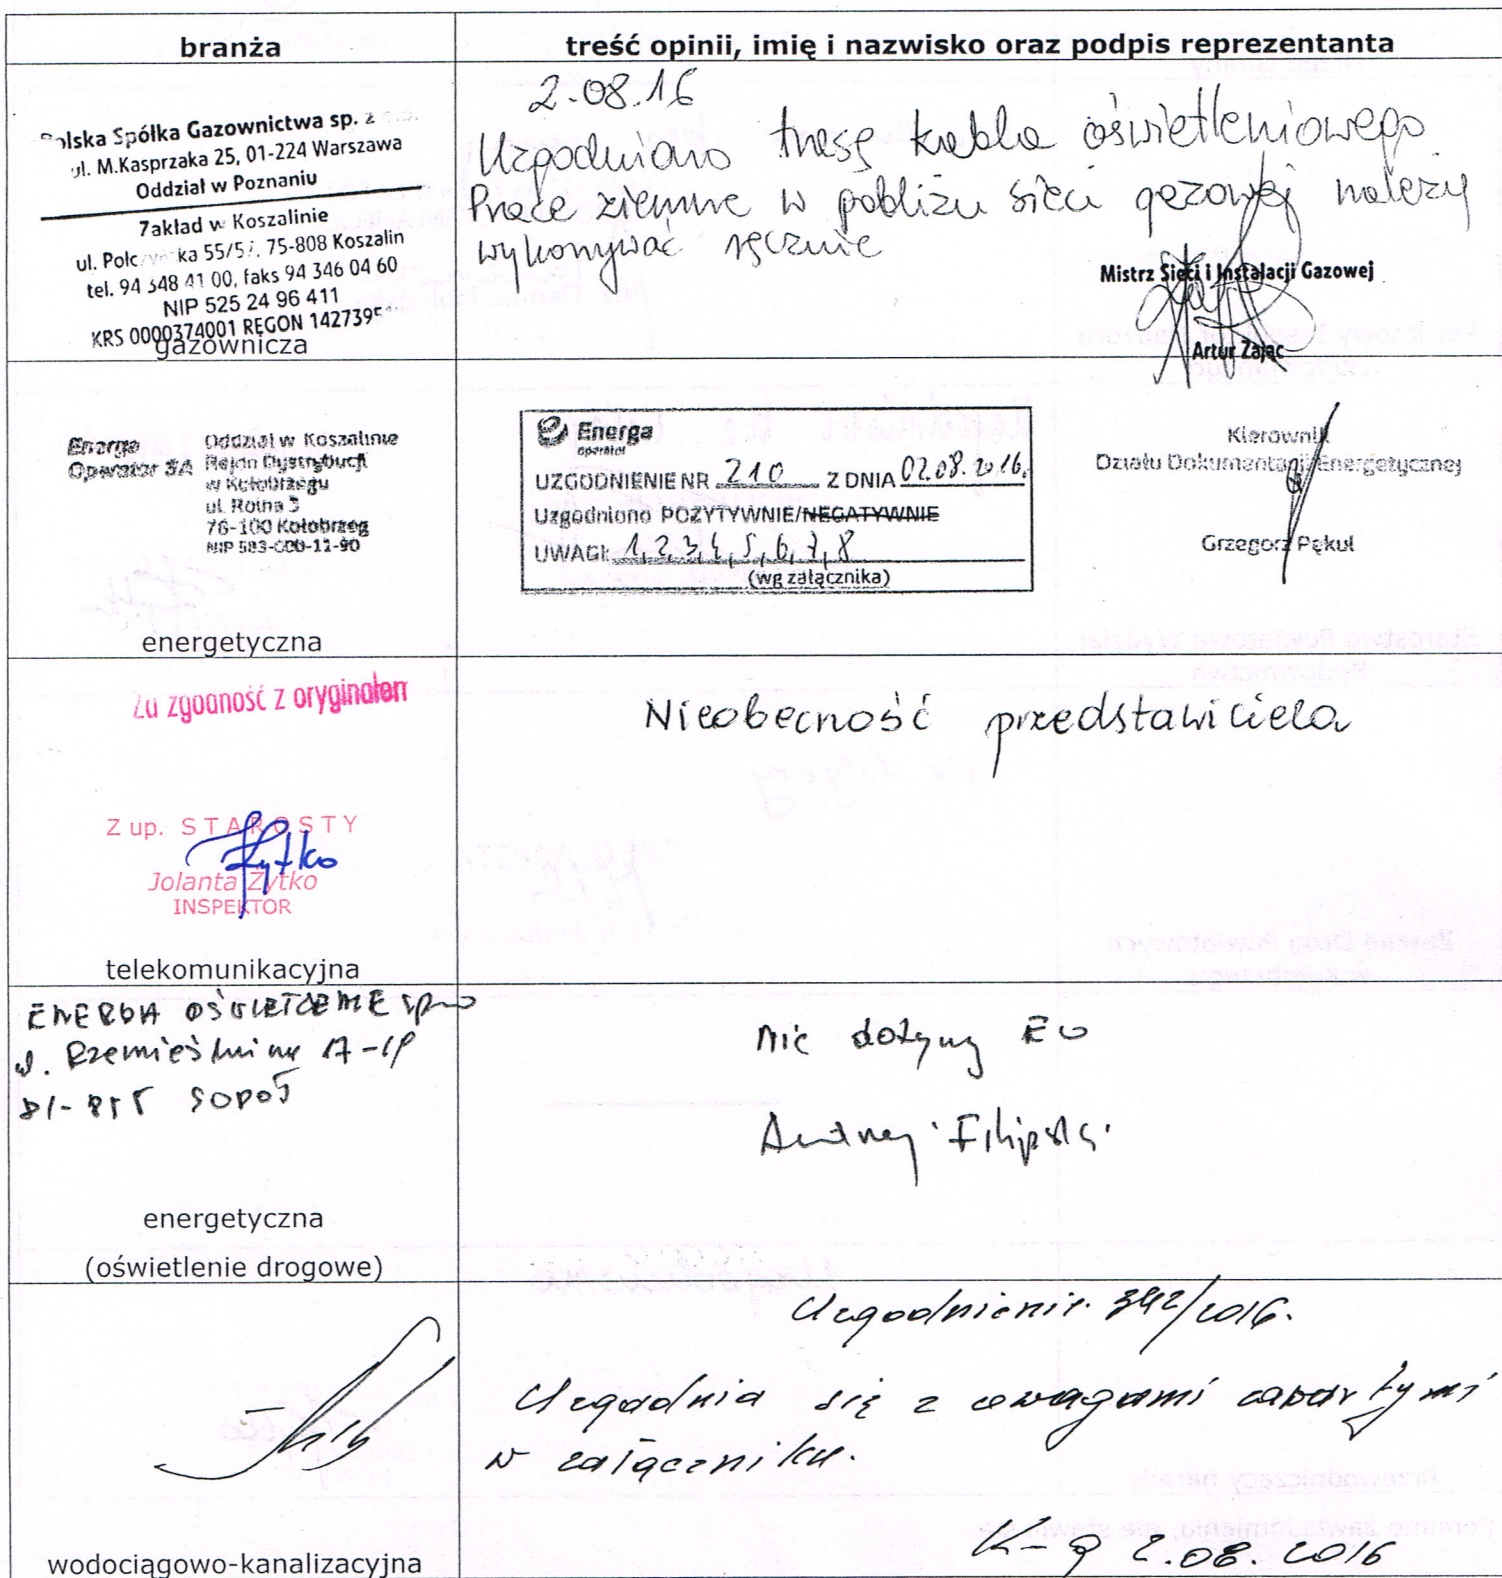 branża
treść opinii, imię i nazwisko oraz podpis reprezentanta
Polska Spółka Gazownictwa sp. z o.o.
ul. M.Kasprzaka 25, 01-224 Warszawa
Oddział w Poznaniu
Zakład w Koszalinie
55/57, 75-808 Koszalin
tel. 94 348 41 00, faks 94 346 04 60
NIP 525 24 96 411
KRS 0000374001 REGON 1427395
gazownicza
2.08.16
Uzgodniono trasę kabla oświetleniowego
Prace ziemne w pobliżu sieci gazowej należy
wykonywać ręcznie
Mistrz Sieci i Instalacji Gazowej
Artur Zając
Energa
Operator SA
Oddział w Koszalinie
Rejon Dystrybucji
w Kołobrzegu
ul. Rolna 3
76-100 Kołobrzeg
NIP 583-000-11-90
energetyczna
Energa
operator
UZGODNIENIE NR 210 Z DNIA 02.08.2016.
Uzgodniono POZYTYWNIE/NEGATYWNIE
UWAGI: 1, 2, 3, 4, 5, 6, 7, 8
(wg załącznika)
Kierownik
Działu Dokumentacji Energetycznej
Grzegorz Pękul
Za zgodność z oryginałem
Z up. STAROSTY
Żytko
Jolanta Żytko
INSPEKTOR
telekomunikacyjna
Nieobecność przedstawiciela
ENERGA OŚWIETLENIE
ul. Rzemieślnicza 17-19
SOPOT
energetyczna
(oświetlenie drogowe)
nie dotyczy EO
Andrzej Filipski
wodociągowo-kanalizacyjna
Uzgodnienie 342/2016.
Uzgadnia się z uwagami zawartymi
w załączniku.
K-g 2.08.2016